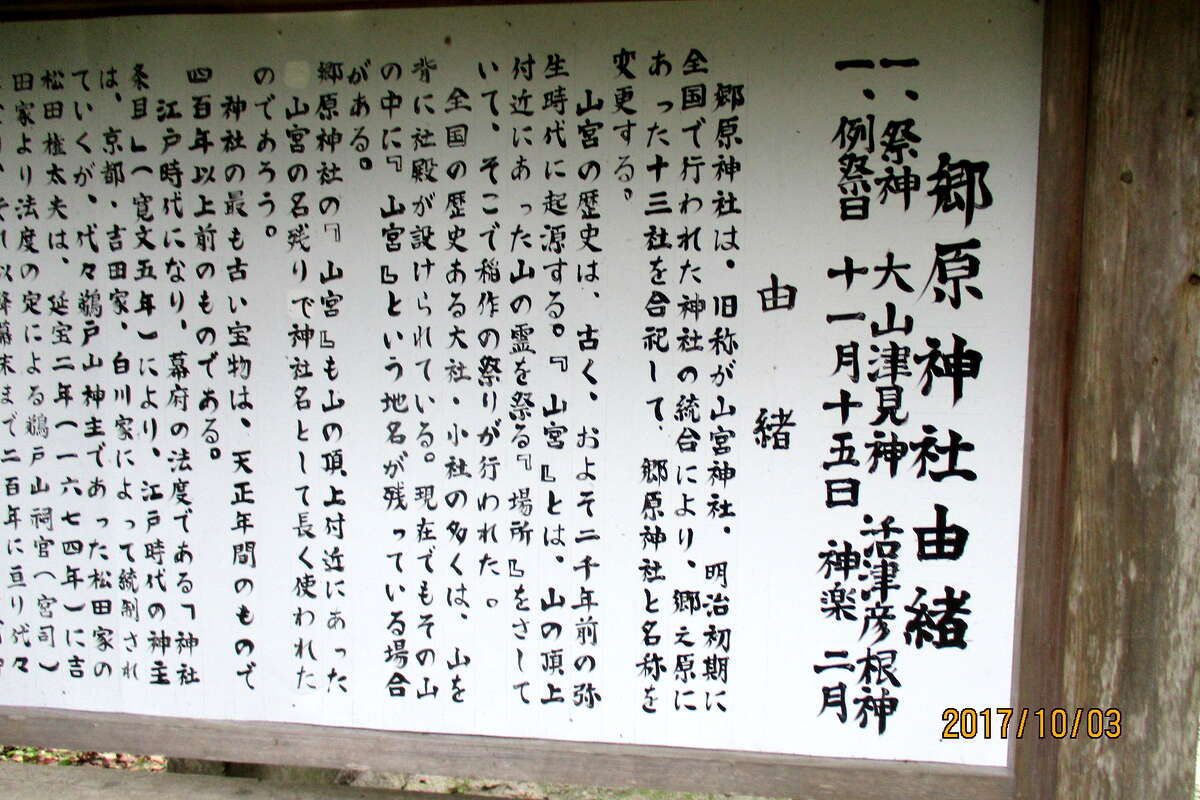 郷原神社由緒
一、祭神 大山津見神 活津彦根神
一、例祭日 十一月十五日 神楽 二月
由緒
郷原神社は、旧称が山宮神社。明治初期に
全国で行われた神社の統合により、郷之原に
あった十三社を合祀して、郷原神社と名称を
変更する。
山宮の歴史は、古く、およそ二千年前の弥
生時代に起源する。『山宮』とは、山の頂上
付近にあった山の霊を祭る『場所』をさして
いて、そこで稲作の祭りが行われた。
全国の歴史ある大社・小社の多くは、山を
背に社殿が設けられている。現在でもその山
の中に『山宮』という地名が残っている場合
がある。
郷原神社の『山宮』も山の頂上付近にあった
山宮の名残りで神社名として長く使われた
のであろう。
神社の最も古い宝物は、天正年間のもので
四百年以上前のものである。
江戸時代になり、幕府の法度である「神社
条目」(寛文五年)により、江戸時代の神主
は、京都・吉田家、白川家によって統制され
ていくが、代々鵜戸山神主であった松田家の
松田権太夫は、延宝二年(一六七四年)に吉
田家より法度の定による鵜戸山祠官(宮司)
それ以降幕末まで二百年に亘り代々
2017/10/03